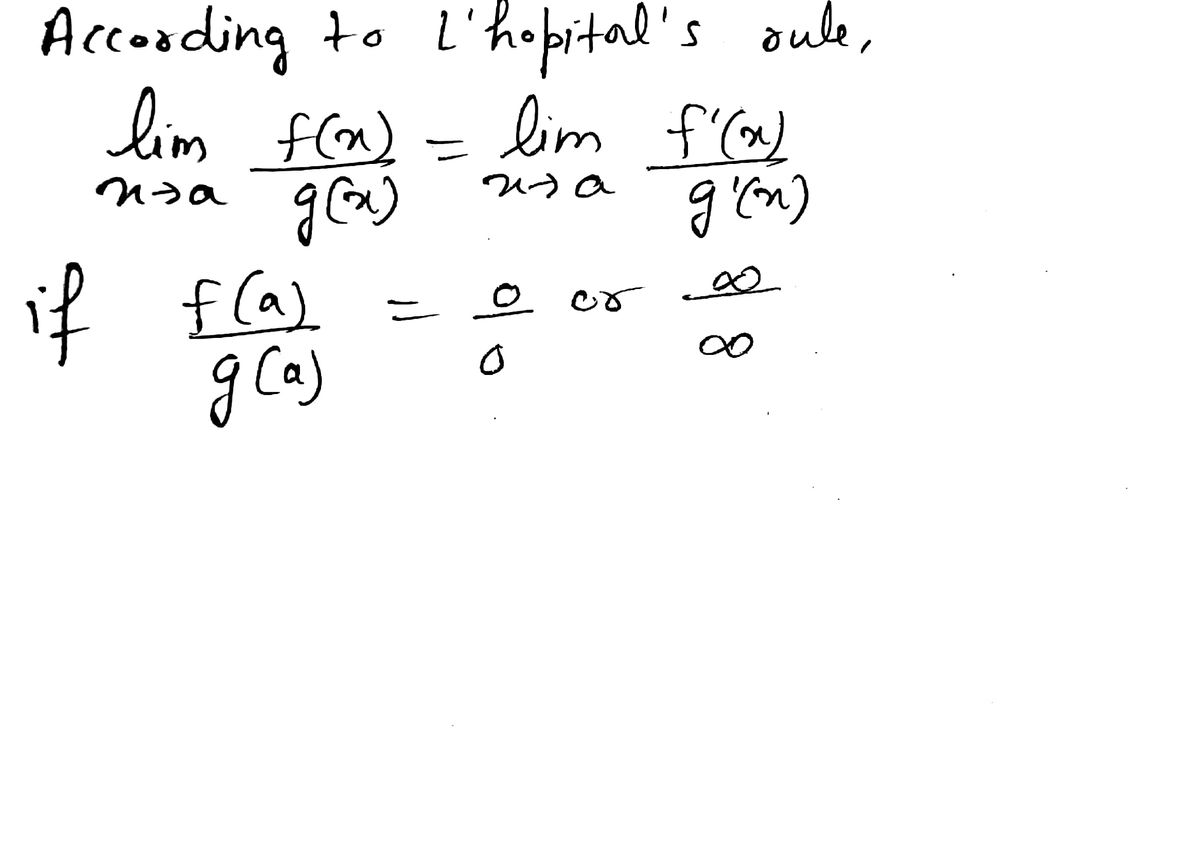 According to L'hopital's rule,
lim x→a f(x)/g(x) = lim x→a f'(x)/g'(x)
if f(a)/g(a) = 0/0 or ∞/∞